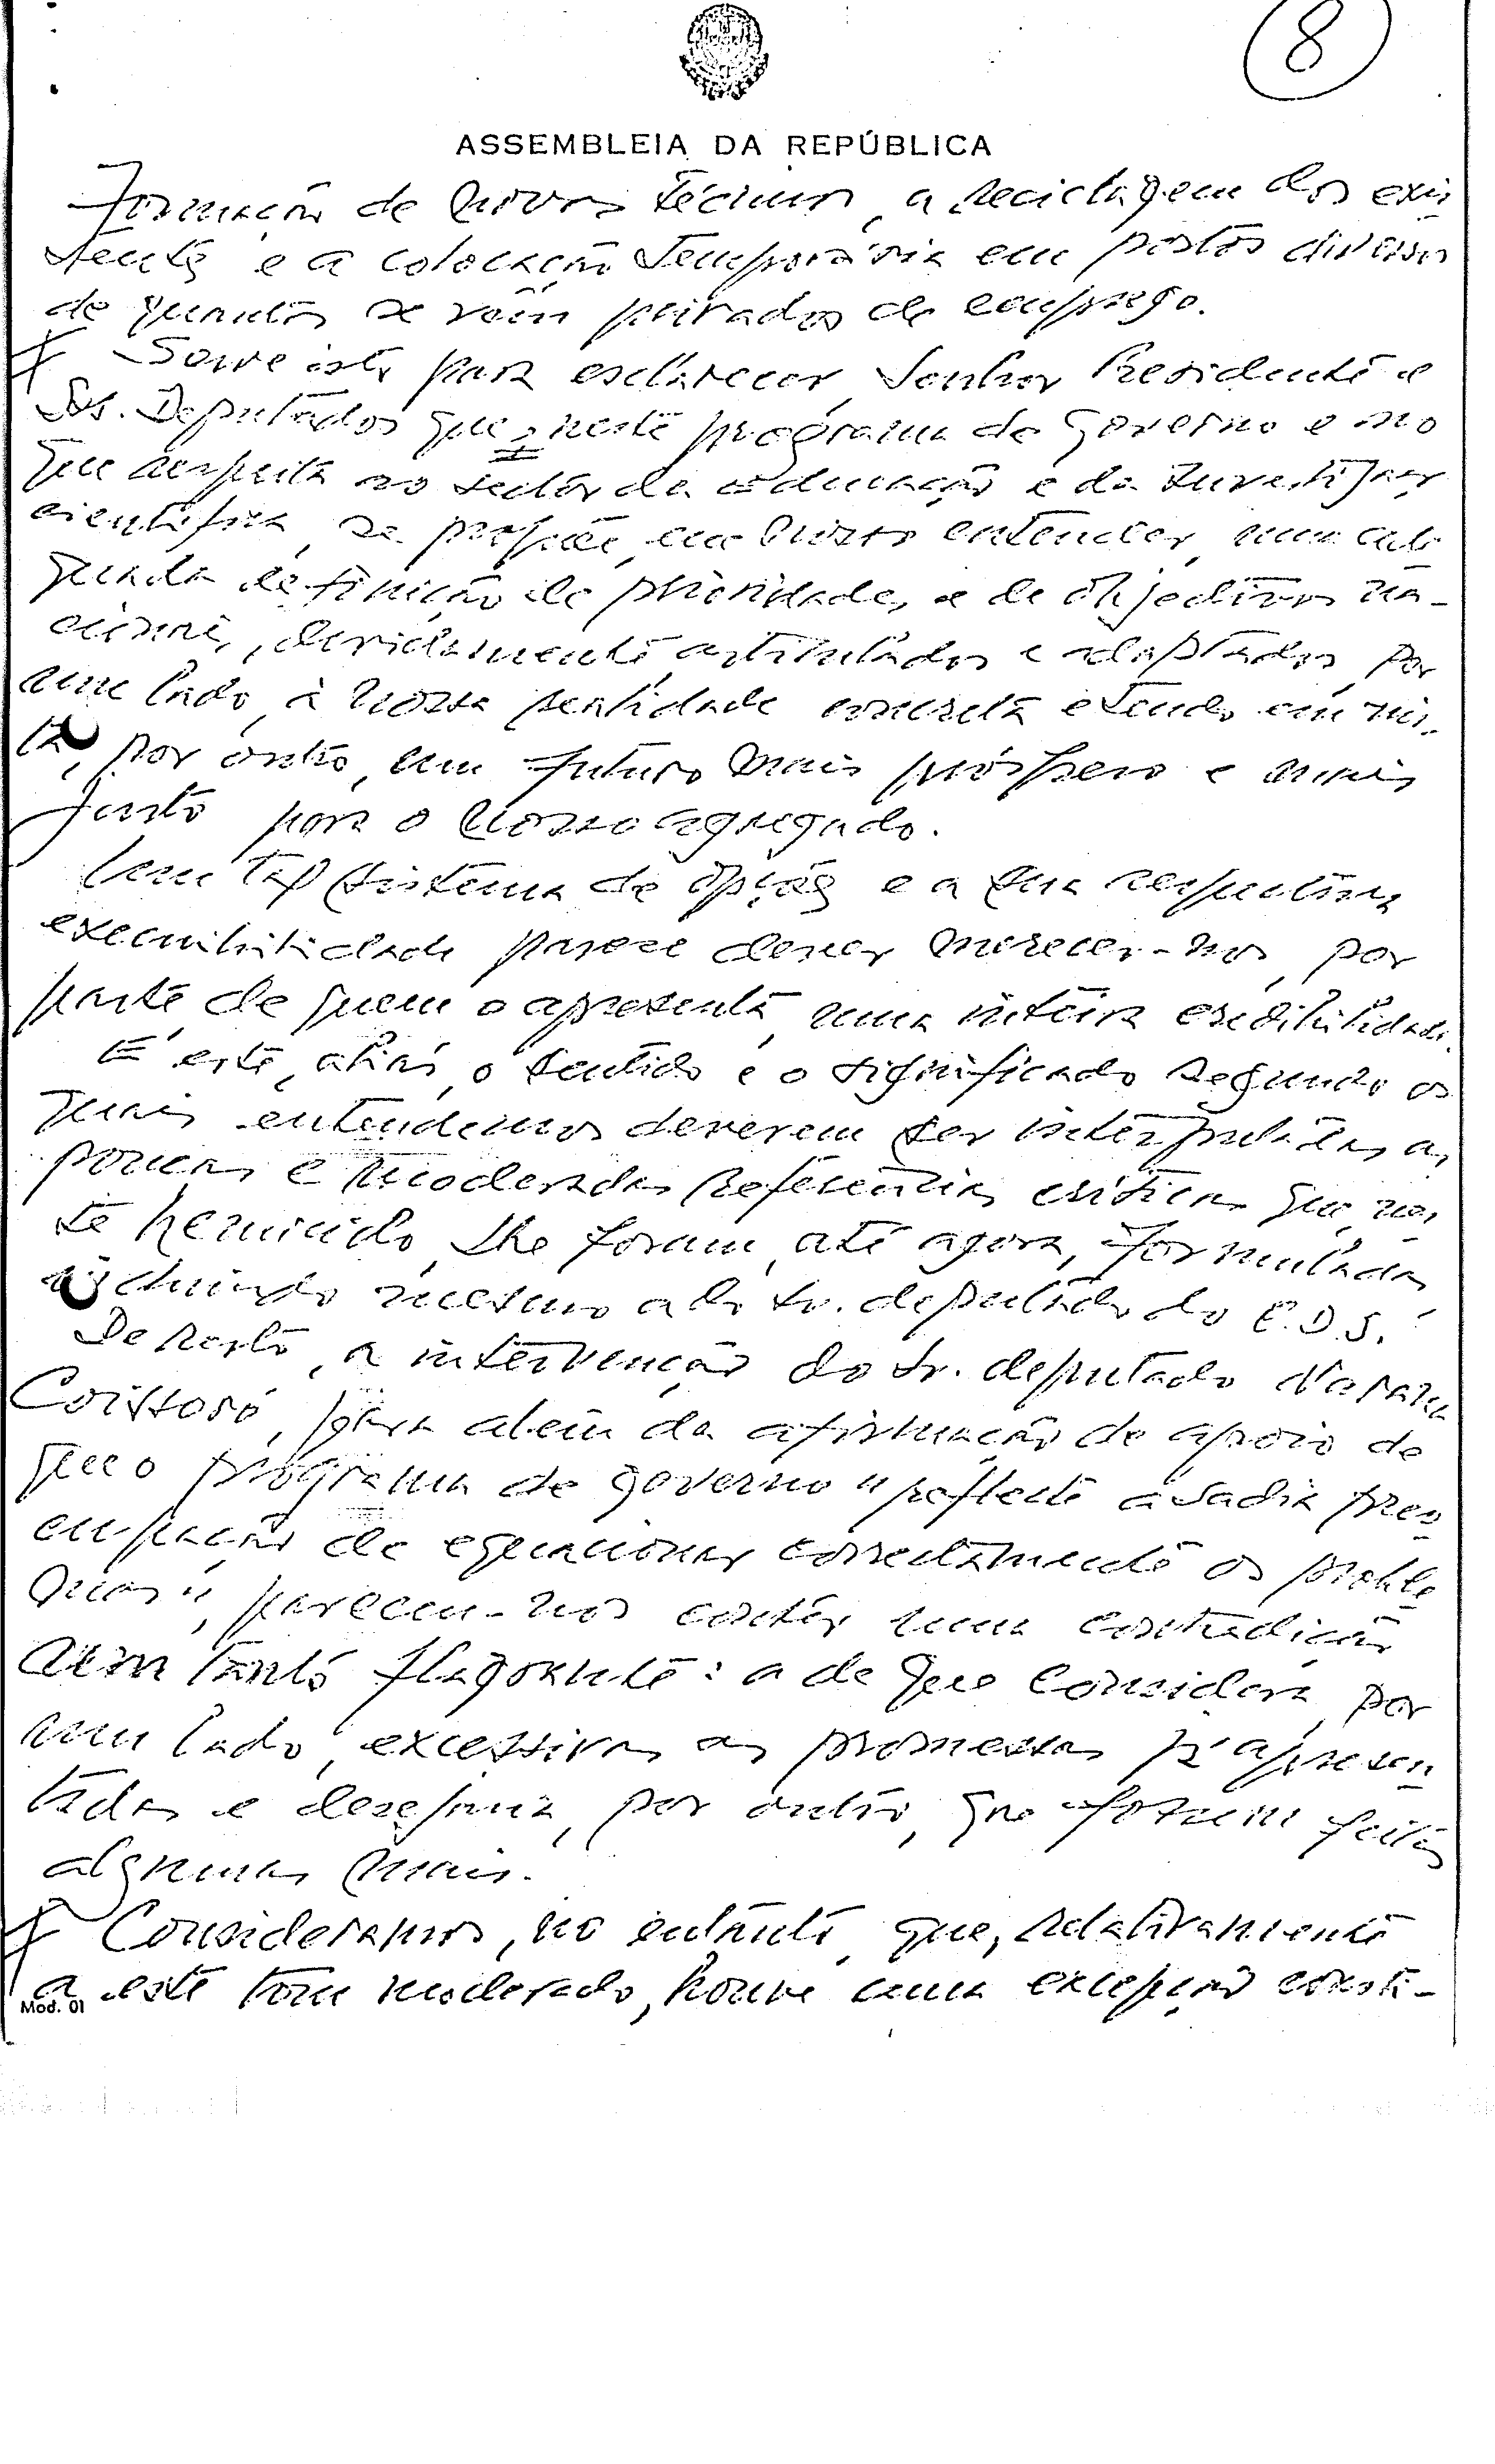 8
ASSEMBLEIA DA REPÚBLICA
formação de novos técnicos, a reciclagem dos exis
tentes e a colocação temporária em postos diversos
de quantos se vêm privados de emprego.
Serve isto para esclarecer, Senhor Presidente e
Srs. Deputados que, neste programa de governo e no
que respeita ao sector da Educação e da Investigação
científica, se propõe, em nosso entender, uma ade
quada definição de prioridades e de objectivos na-
cionais, devidamente articulados e adaptados, por
um lado, à nossa realidade concreta e tendo em vis-
ta, por outro, um futuro mais próspero e mais
justo para o nosso agregado.
Um tal sistema de opções e a sua respectiva
exequibilidade parece dever merecer-nos, por
parte de quem o apresenta, uma inteira credibilidade.
É este, aliás, o sentido e o significado segundo os
quais entendemos deverem ser interpretadas as
poucas e moderadas referências críticas que, nes
te hemiciclo, lhe foram, até agora, formuladas,
incluindo mesmo a do Sr. deputado do C.D.S.
De resto, a intervenção do Sr. deputado Narana
Coissoró, para além da afirmação de apoio de
que o programa de governo "reflecte a sadia preo
cupação de equacionar correctamente os proble
mas", pareceu-nos conter uma contradição
um tanto flagrante: a de que considera, por
um lado, excessivas as promessas já apresen
tadas e desejaria, por outro, que fossem feitas
algumas mais.
Consideramos, no entanto, que, relativamente
a este tom moderado, houve uma excepção consti-
Mod. 01